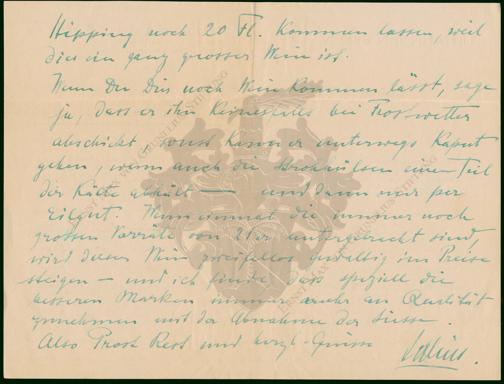 Hipping noch 20 Fl. kommen lassen, weil
dies ein ganz grosser Wein ist.
Wenn Du Dir noch Wein kommen lässt, sage
ja, dass er ihn keinesfalls bei Frostwetter
abschickt, sonst kann er unterwegs kaput
gehen, wenn auch die Strohhülsen einen Teil
der Kälte abhält — und dann nur per
Eilgut. Wenn einmal die immer noch
grossen Vorräte von 21er untergebracht sind,
wird dieser Wein zweifellos gewaltig im Preise
steigen — und ich finde, dass speziell die
besseren Marken immer mehr an Qualität
zunehmen mit der Abnahme der Süsse.
Also Prost Rest und herzl. Grüsse